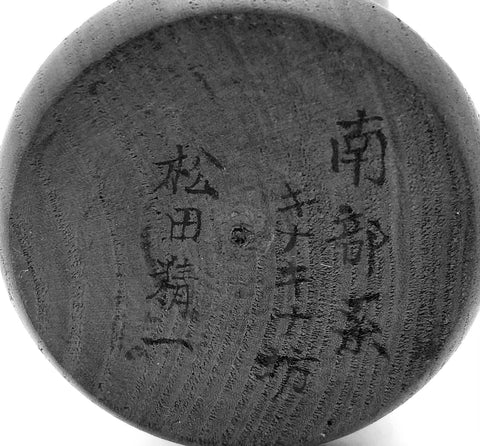 南部系
キナキナ坊
松田精一